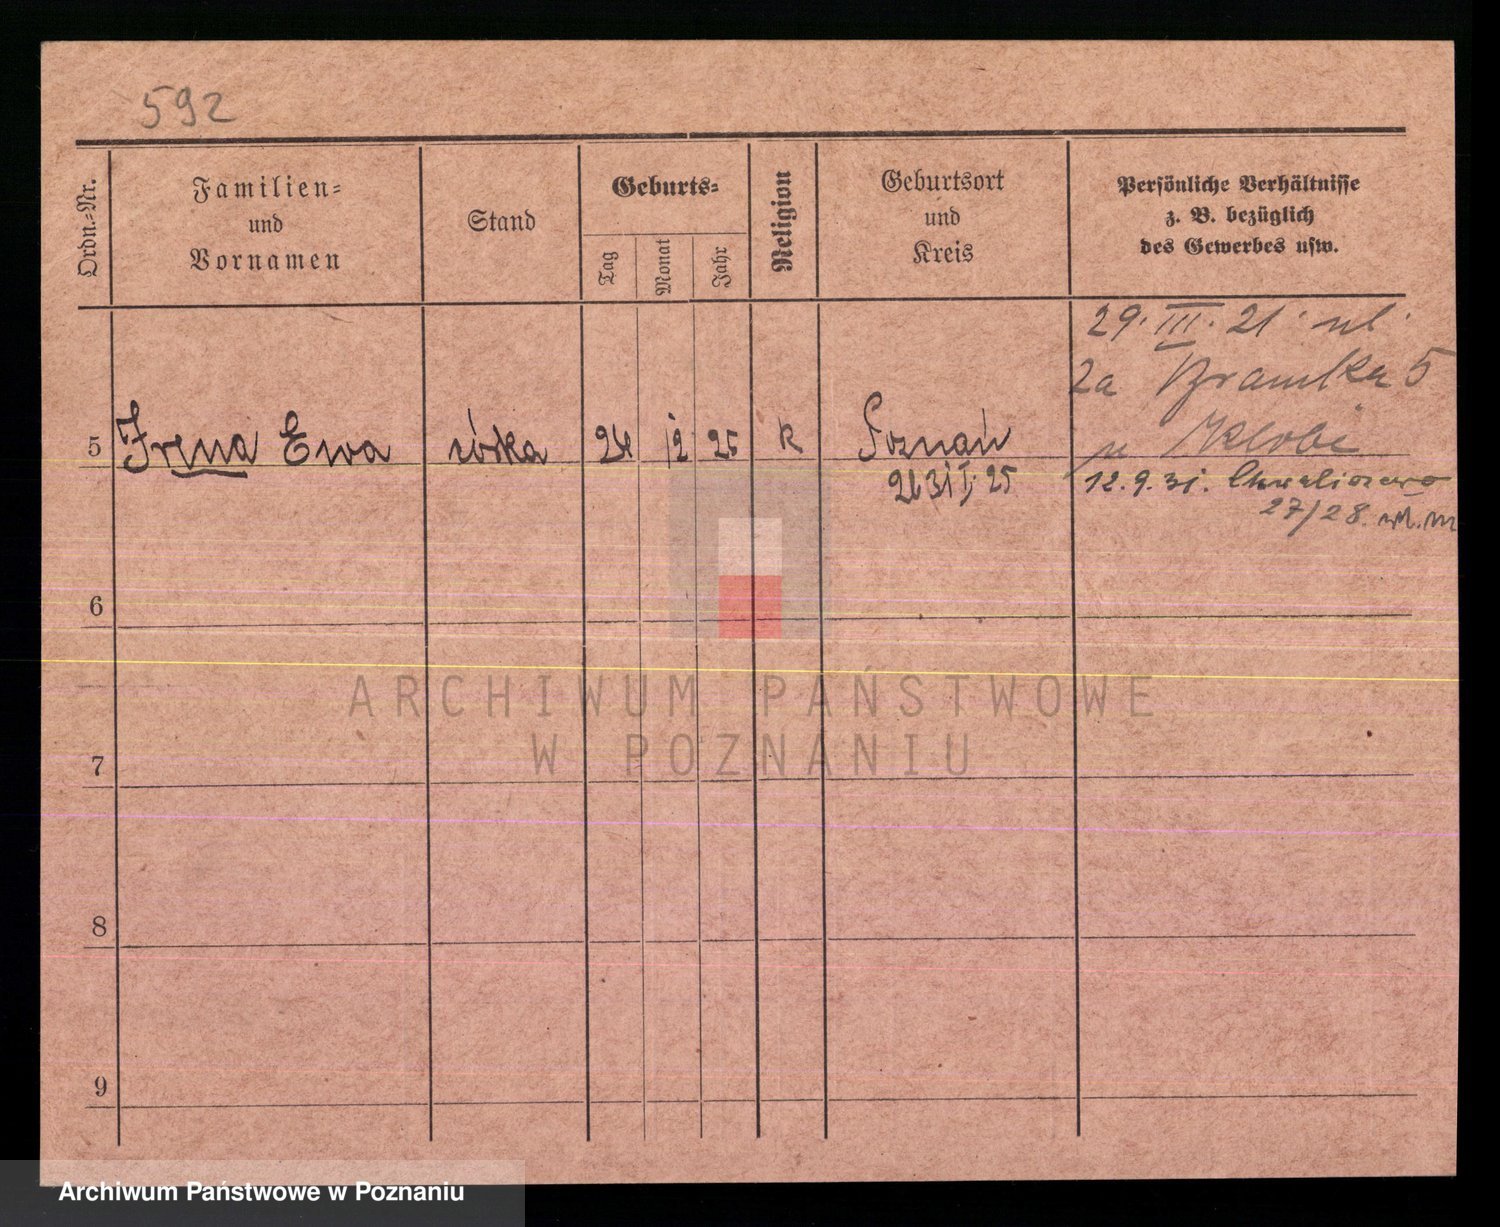 592
Ordn.=Nr.
Familien=
und
Vornamen
Stand
Geburts=
Tag
Monat
Jahr
Religion
Geburtsort
und
Kreis
Persönliche Verhältnisse
z. B. bezüglich
des Gewerbes usw.
29. III. 21. ul.
2a 5
5 Irena Ewa córka 24 12 25 k Poznań
12.9.31.
27/28.
6
ARCHIWUM PAŃSTWOWE
W POZNANIU
7
8
9
Archiwum Państwowe w Poznaniu